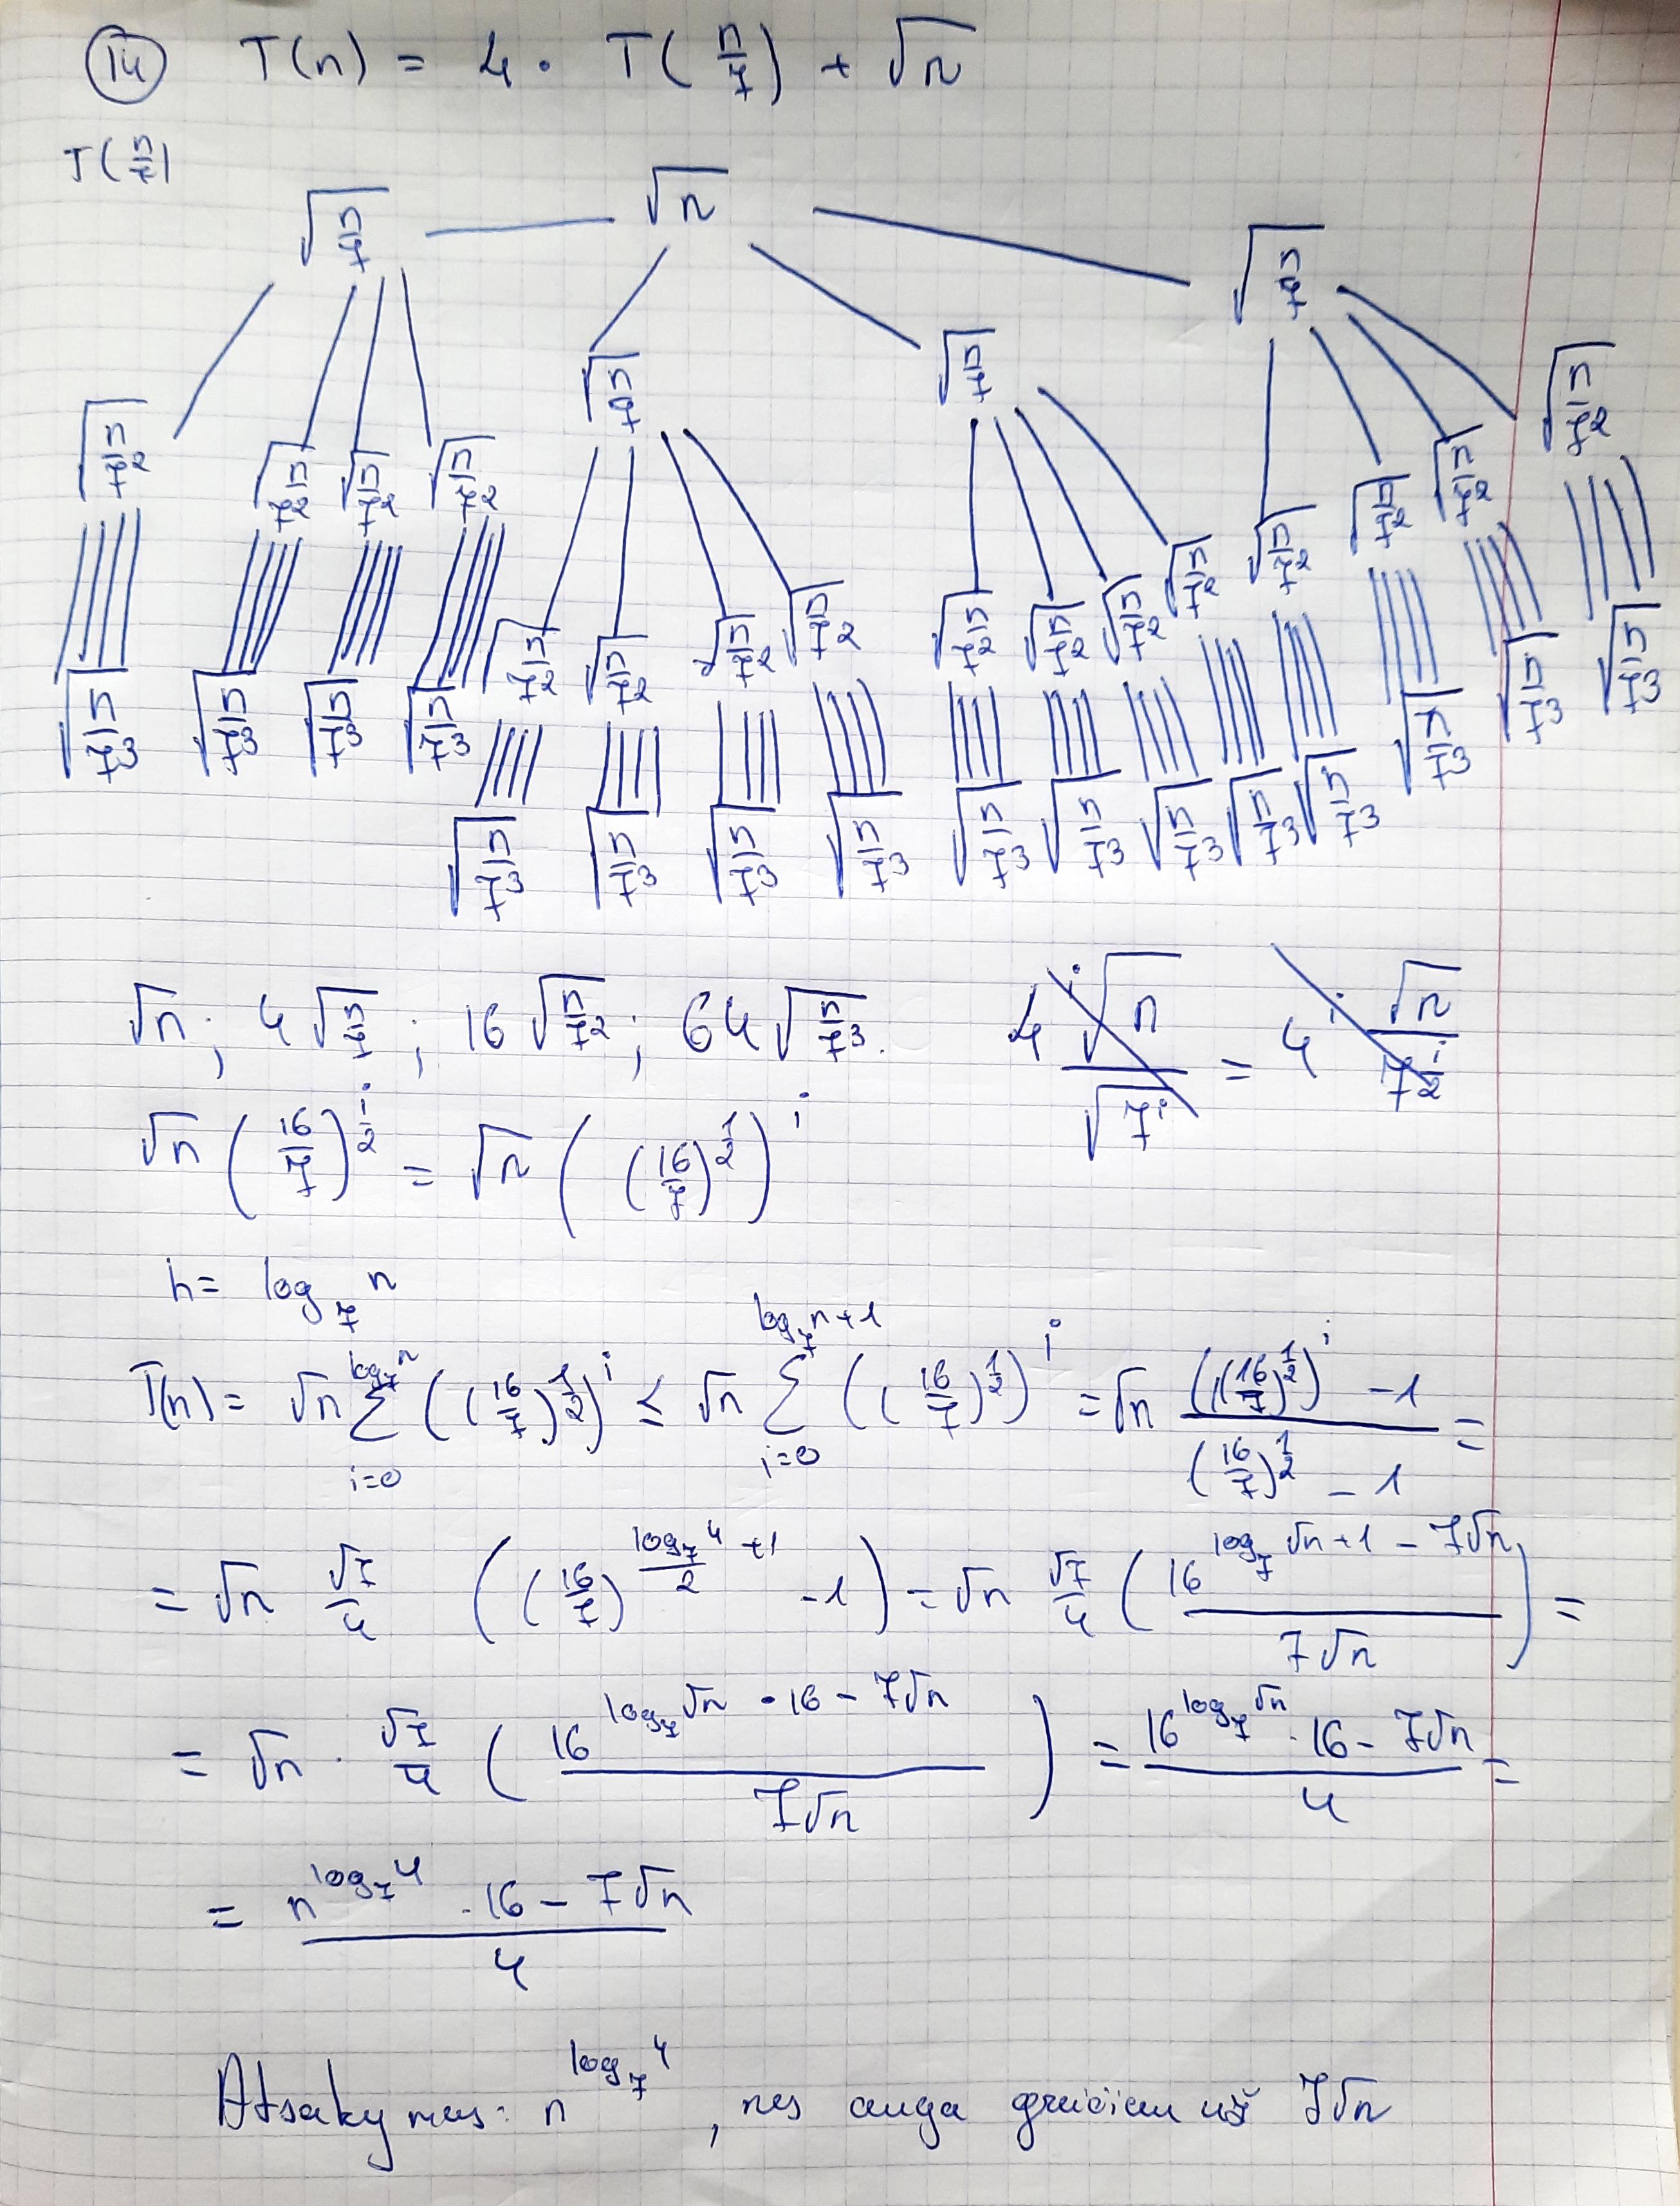 14 T(n) = 4 · T(n/7) + √n
T(n/7)
√(n/7) √n √(n/7)
√(n/7) √(n/7)
√(n/7²) √(n/7²) √(n/7²) √(n/7²) √(n/7²) √(n/7²) √(n/7²) √(n/7²)
√(n/7²) √(n/7²) √(n/7²) √(n/7²) √(n/7²) √(n/7²) √(n/7²) √(n/7²)
√(n/7³) √(n/7³) √(n/7³) √(n/7³) √(n/7³) √(n/7³) √(n/7³)
√(n/7³) √(n/7³) √(n/7³) √(n/7³) √(n/7³) √(n/7³) √(n/7³) √(n/7³) √(n/7³)
√n ; 4√(n/7) ; 16√(n/7²) ; 64√(n/7³). 4^i √n / √(7^i) = 4^i √n / 7^(i/2)
√n (16/7)^(i/2) = √n ((16/7)^(1/2))^i
h = log₇ n
T(n) = √n Σ_{i=0}^{log₇ n} ((16/7)^(1/2))^i ≤ √n Σ_{i=0}^{log₇ n+1} ((16/7)^(1/2))^i = √n (((16/7)^(1/2))^i - 1) / ((16/7)^(1/2) - 1) =
= √n √7/4 ((16/7)^(log₇ 4 / 2 +1) - 1) = √n √7/4 (16^(log₇ √n+1) - 7√n / 7√n) =
= √n · √7/4 (16^(log₇ √n) · 16 - 7√n / 7√n) = 16^(log₇ √n) · 16 - 7√n / 4 =
= n^(log₇ 4) · 16 - 7√n / 4
Atsakymas: n^(log₇ 4), nes auga greičiau už 7√n